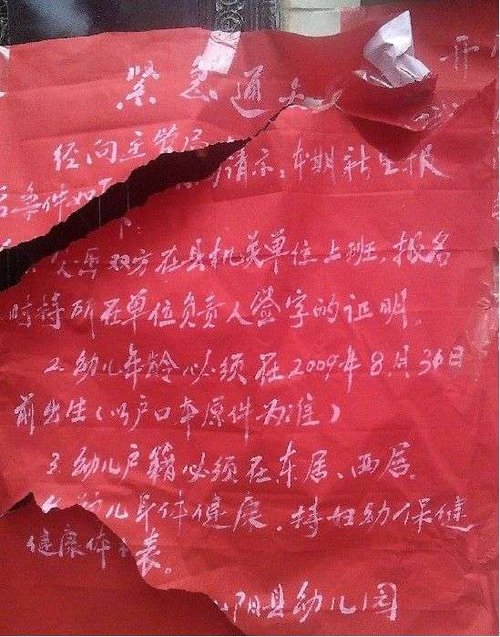 紧急通
经向主管局请示,本期新生报
名条件如下
父母双方在县机关单位上班,报名
时持所在单位负责人签字的证明。
2.幼儿年龄必须在2009年8月30日
前出生(以户口本原件为准)
3.幼儿户籍必须在东居、西居。
幼儿身体健康,持妇幼保健
健康体表。
阳县幼儿园